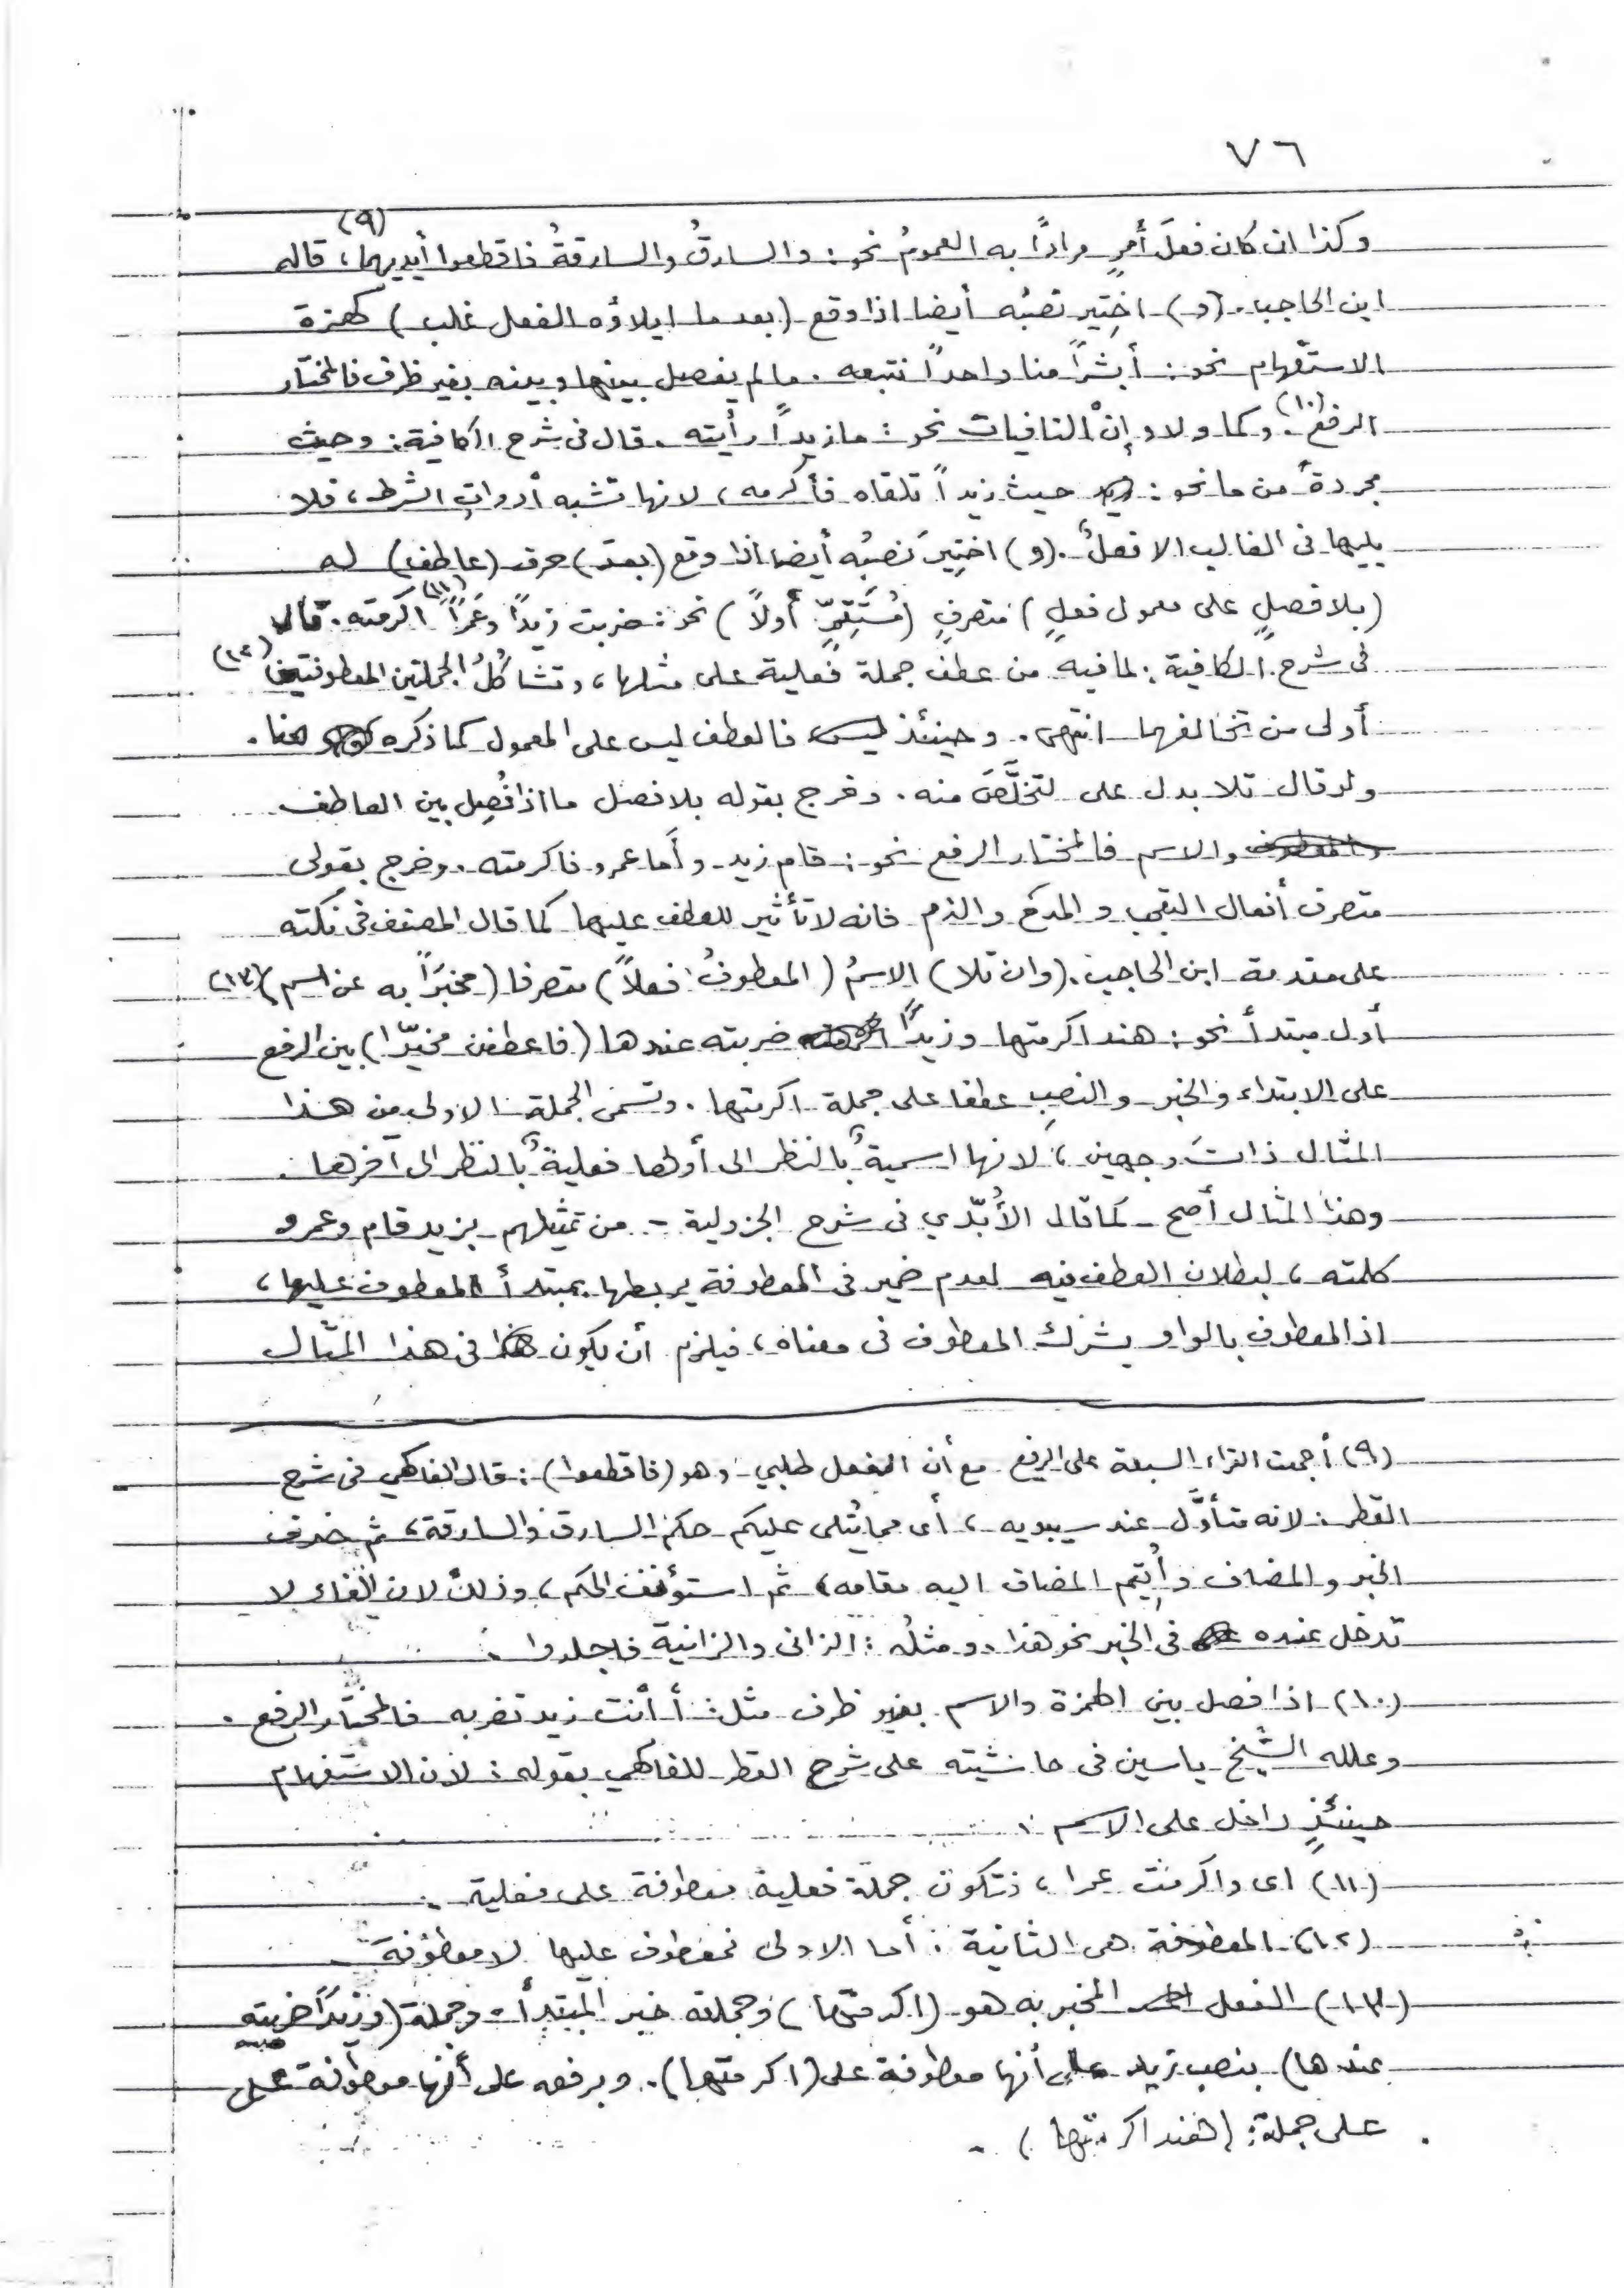 ٧٦
وكذا ان كان فعلَ أمرٍ مرادًا به العمومُ نحو: والسارقُ والسارقةُ فاقطعوا أيديهما (٩)، قاله
ابن الحاجب. (و) اختِير نصبُه أيضا اذا وقع (بعد ما ايلاؤه الفعل غلب) كهمزة
الاستفهام نحو: أبشراً منا واحداً نتبعه. مالم يفصل بينها وبينه بغير ظرف فالمختار
الرفع (١٠). وكما ولا وإنْ النافيات نحو: ما زيداً رأيته. قال فى شرح الكافية: وحيث
مجردةً من ما نحو: حيث زيداً تلقاه فأكرمه، لانها تشبه أدواتِ الشرط، فلا
يليها فى الغالب الا فعلٌ. (و) اختِيرَ نصبُه أيضا اذا وقع (بعدَ) حرف (عاطف) له
(بلا فصلٍ على معمول فعلٍ) متصرفٍ (مُستَقِرٍّ أولاً) نحو: ضربت زيداً وعَمراً (١١) اكرمته. قال
فى شرح الكافية: لما فيه من عطف جملة فعلية على مثلها، وتشاكلُ الجملتين المعطوفتين (١٢)
أولى من تخالفهما انتهى. وحينئذ فالعطف ليس على المعمول كما ذكره هنا.
ولو قال تلا بدل على لتخلَّصَ منه. وخرج بقوله بلا فصل ما اذا فُصِل بين العاطف
والاسم فالمختار الرفع نحو: قام زيد وأما عمرو فاكرمته. وخرج بقولى
متصرف أفعال التعجب والمدح والذم فانه لا تأثير للعطف عليها كما قال المصنف فى نكته
على مقدمة ابن الحاجب. (وان تلا) الاسمُ (المعطوفُ فعلاً) متصرفا (مخبَراً به عن اسم) (١٣)
أول مبتدأ نحو: هند اكرمتها وزيداً ضربته عندها (فاعطفن مخيّرا) بين الرفع
على الابتداء والخبر والنصبِ عطفا على جملة اكرمتها. وتسمى الجملة الاولى من هذا
المثال ذاتَ وجهين، لانها اسميةٌ بالنظر الى أولها فعليةٌ بالنظر الى آخرها.
وهذا المثال أصح - كما قال الأُبّدي فى شرح الجزولية - من تمثيلهم بزيد قام وعمرو
كلمته، لبطلان العطف فيه لعدم ضمير فى المعطوفة يربطها بمبتدأ المعطوف عليها،
اذ المعطوف بالواو يشرك المعطوف فى معناه، فيلزم أن يكون فى هذا المثال
(٩) أجمعت القراء السبعة على الرفع مع أن الفعل طلبي وهو (فاقطعوا): قال الفاكهي فى شرح
القطر: لانه متأوَّل عند سيبويه، أى مما يُتلى عليكم حكم السارق والسارقة، ثم حذف
الخبر والمضاف وأُقيم المضاف اليه مقامه، ثم استؤنف الحكم، وذلك لان الفاء لا
تدخل عنده فى الخبر نحو هذا. ومثلُه: الزانى والزانية فاجلدوا.
(١٠) اذا فصل بين الهمزة والاسم بغير ظرف مثل: أ أنت زيد تضربه فالمختار الرفع.
وعلله الشيخ ياسين فى حاشيته على شرح القطر للفاكهي بقوله: لان الاستفهام
حينئذٍ داخل على الاسم.
(١١) اى واكرمت عمرا، فتكون جملة فعلية معطوفة على فعلية.
(١٢) المعطوفة هى الثانية: أما الاولى فمعطوف عليها لا معطوفة
(١٣) الفعل المخبر به هو (اكرمتها) وجملته خبر المبتدأ - وجملة (وزيداً ضربته
عندها) بنصب زيد على أنها معطوفة على (اكرمتها). وبرفعه على أنها معطوفة على
على جملة: (هند اكرمتها).